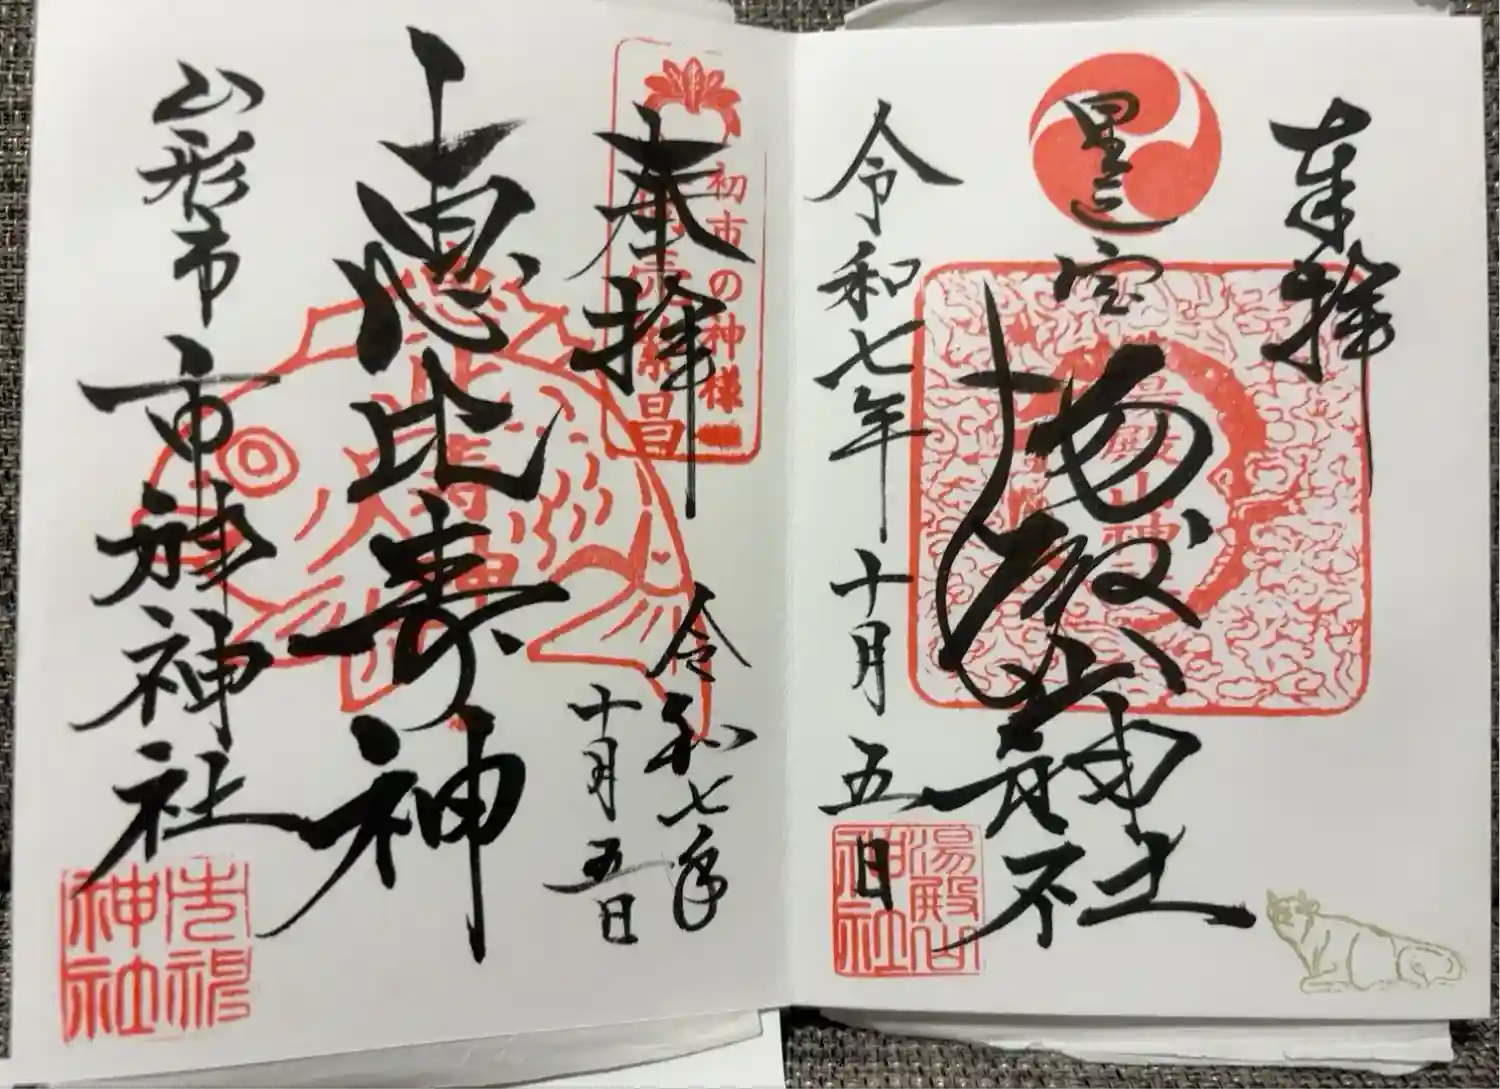 奉拝
里之宮
湯殿山神社
令和七年十月五日
湯殿山
神社
初市の神様
商売繁昌
奉拝
令和七年
十月五日
恵比寿神
山形市
市神神社
市神
神社